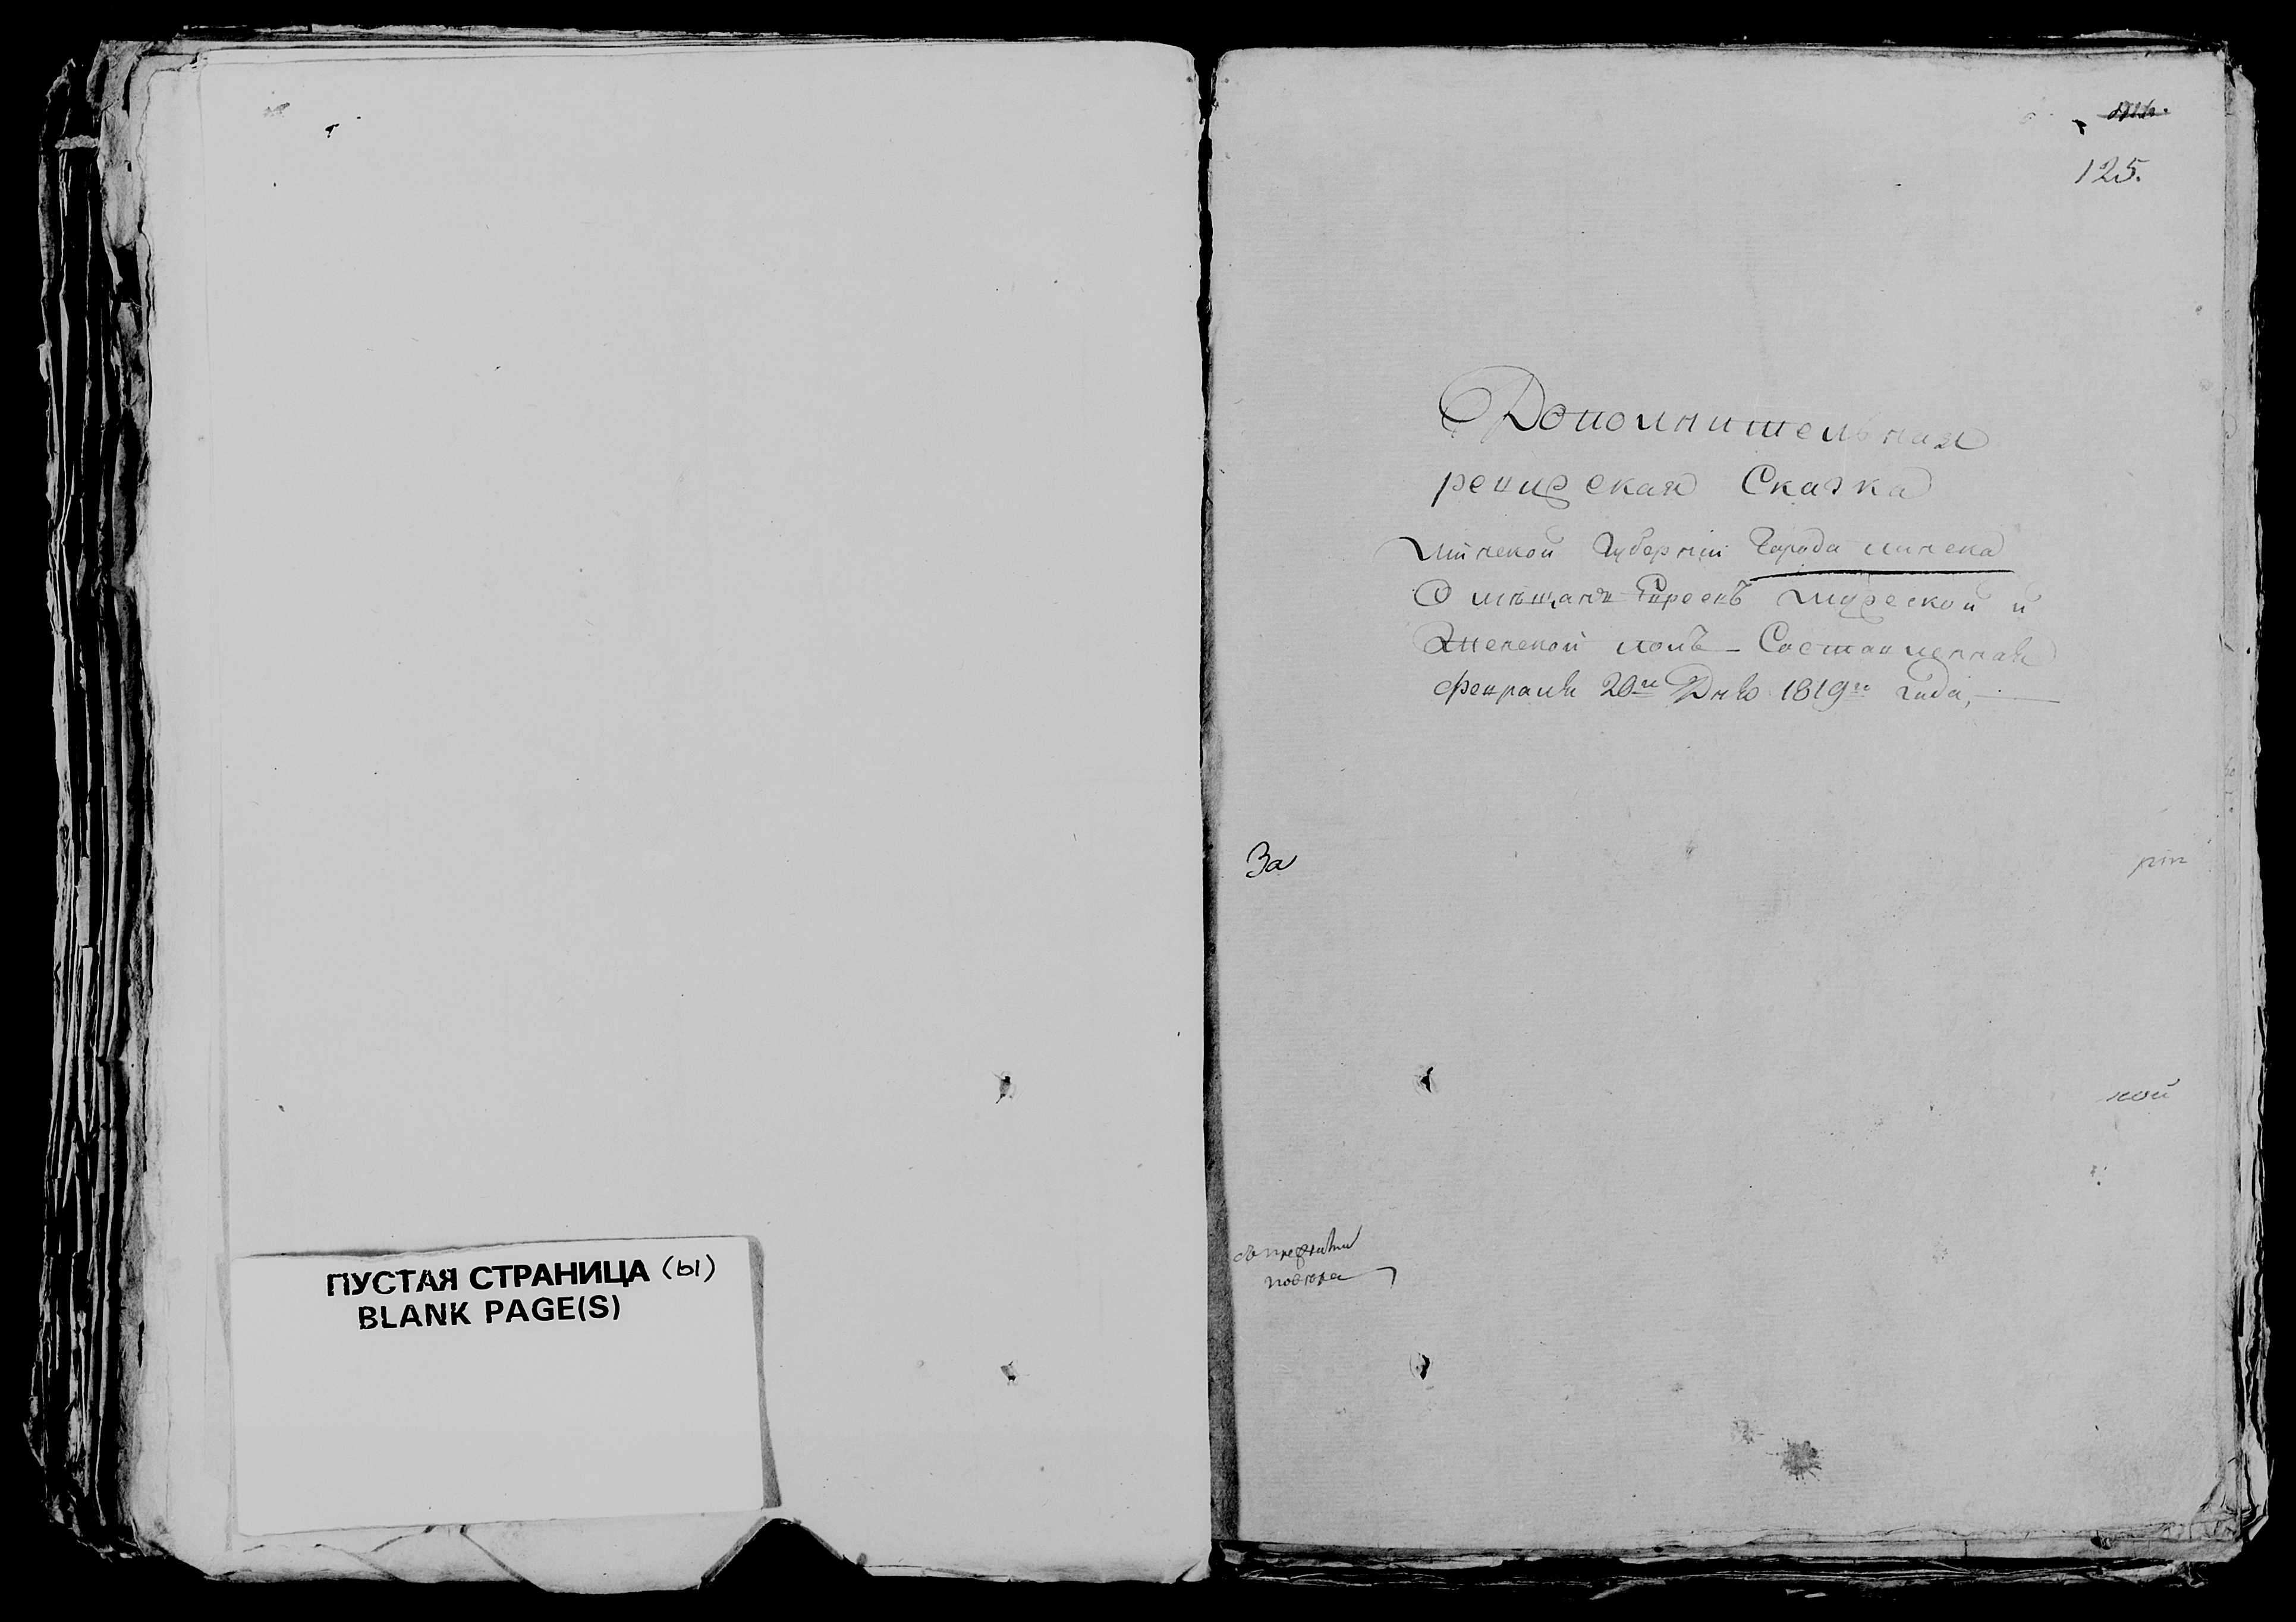 ПУСТАЯ СТРАНИЦА (ы)
BLANK PAGE(S)
125.
Дополнительная
ревизская Сказка
Минской Губернии Города минска
О мѣщанъ Евреевъ мужеской и
Женской полъ – Составленная
февраля 20го Дня 1819го года, —
За
рiи
кой
повюра